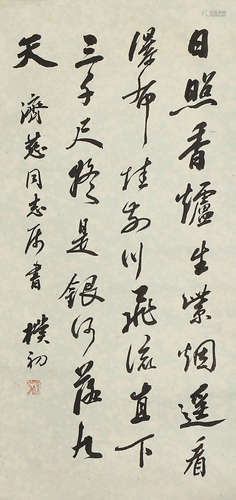 日照香爐生紫烟遥看
瀑布挂前川飛流直下
三千尺疑是銀河落九
天
濟慈同志属書 樸初